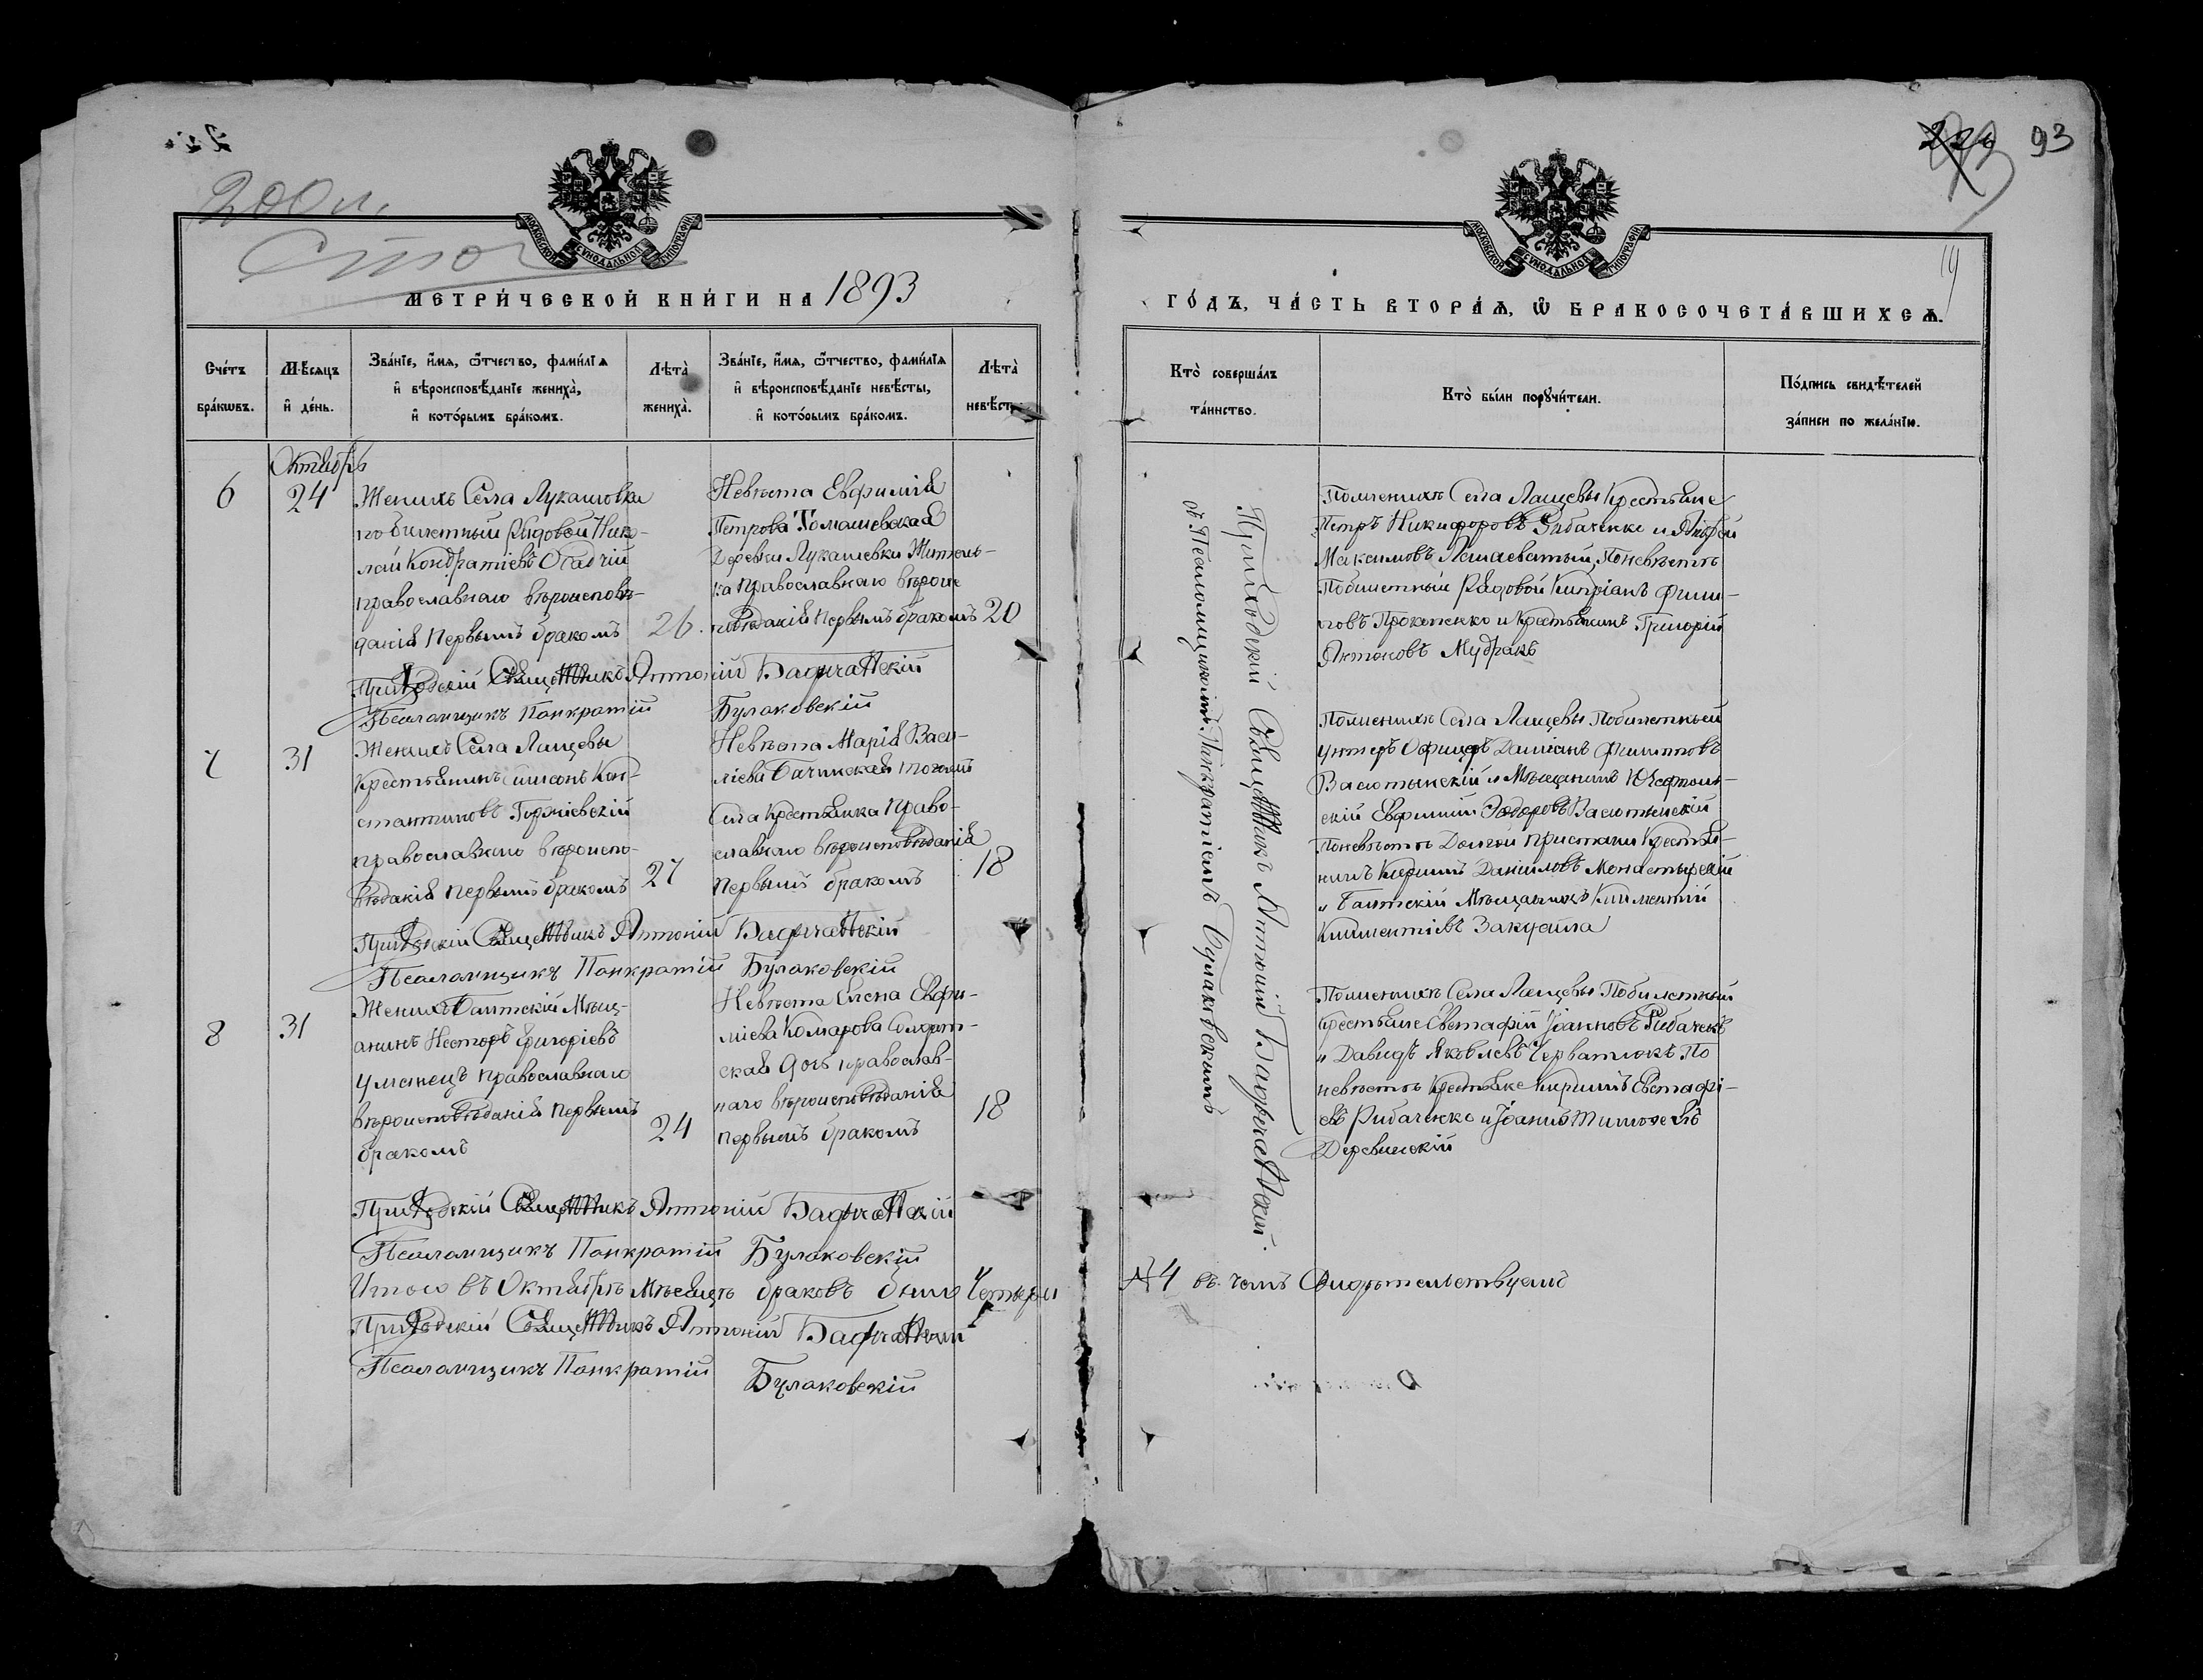 93
200 л.
МОСКОВСКОЙ СѴНОДАЛЬНОЙ ТИПОГРАФІИ
МЕТРИ́ЧЕСКОЙ КНИ́ГИ НА 1893
Сче́тъ бра́кѡвъ.
Мѣ́сяцъ и҆ де́нь.
Зва́нїе, и҆́мѧ, ѻ҆́тчество, фами́лїѧ
и҆ вѣроисповѣ́данїе жениха̀,
и҆ кото́рымъ бра́комъ.
Лѣта̀ жениха̀.
Зва́нїе, и҆́мѧ, ѻ҆́тчество, фами́лїѧ
и҆ вѣроисповѣ́данїе невѣ́сты,
и҆ кото́рымъ бра́комъ.
Лѣта̀ невѣ́сты.
Октябрь
6
24
Женихъ Села Лукашовки
побилетный Рядовой Нико-
лай Кондратіевъ Осадчій
православнаго вѣроисповѣ-
данія Первымъ бракомъ
26.
Невѣста Евфимія
Петрова Томашевская
Деревни Лукашевки Житель-
ка Православнаго вѣроис
повѣданія Первымъ бракомъ
20
Приходскій Священникъ Антоній
Псаломщикъ Панкратій Булаковскій
7
31
Женихъ Села Лащевы
Крестьянинъ Симеонъ Кон-
стантиновъ
православнаго вѣроиспо-
вѣданія Первымъ бракомъ
27
Невѣста Марія Васи-
ліева Бачинская тогожъ
Села Крестьянка Право-
славнаго вѣроисповѣданія
Первымъ бракомъ
18
Приходскій Священникъ Антоній
Псаломщикъ Панкратій Булаковскій
8
31
Женихъ Балтскій Мѣщ-
анинъ Несторъ Григоріевъ
Уманецъ православнаго
вѣроисповѣданія Первымъ
бракомъ
24
Невѣста Елена Евфи-
міева Комарова Солдат-
ская Дочь православ-
наго вѣроисповѣданія
Первымъ бракомъ
18
Приходскій Священникъ Антоній
Псаломщикъ Панкратій Булаковскій
Итого въ Октябрѣ Мѣсяцѣ браковъ было Четыри
Приходскій Священникъ Антоній
Псаломщикъ Панкратій Булаковскій
МОСКОВСКОЙ СѴНОДАЛЬНОЙ ТИПОГРАФІИ
ГО́ДЪ, ЧА́СТЬ ВТОРА́Ѧ, Ѡ҆ БРАКОСОЧЕТА́ВШИХСѦ.
Кто̀ соверша́лъ
та́инство.
Кто̀ бы́ли порꙋчи́тели.
По́дпись свидѣ́телей
за́писи по жела́нїю.
Приходскій Священникъ Антоній
съ Псаломщикомъ Панкратіемъ Булаковскимъ
По женихѣ Села Лащевы Крестьяне
Петръ Никифоровъ Рибаченко и
Максимовъ По невѣстѣ
Побилетный Рядовой Кипріанъ Фили-
повъ Прокопенко и Крестьянинъ Григорій
Антоновъ Мудракъ
По женихѣ Села Лащевы Побилетный
Унтеръ Офицеръ Даміанъ Филиповъ
Васютынскій и Мѣщанинъ
скій Евфимій Ѳеодоровъ Васютынскій
По невѣстѣ Долгой Пристани Крестья-
нинъ Кирилъ Даніиловъ Монастырскій
и Балтскій Мѣщанинъ Климентій
Климентіевъ
По женихѣ Села Лащевы Побилетный
Крестьяне Евстафій Іоанновъ Рибаченко
и Давидъ Яковлевъ По
невѣстѣ Крестьяне Кирилъ Евстафі-
евъ Рибаченко и Іоаннъ Тимофеевъ
Деревинскій
№ 4 въ чемъ Свидѣтельствуемъ